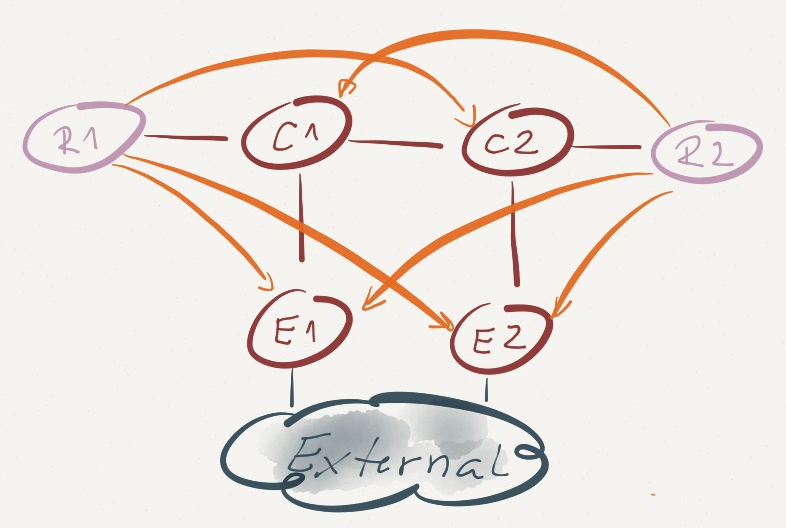 R1
C1
C2
R2
E1
E2
External